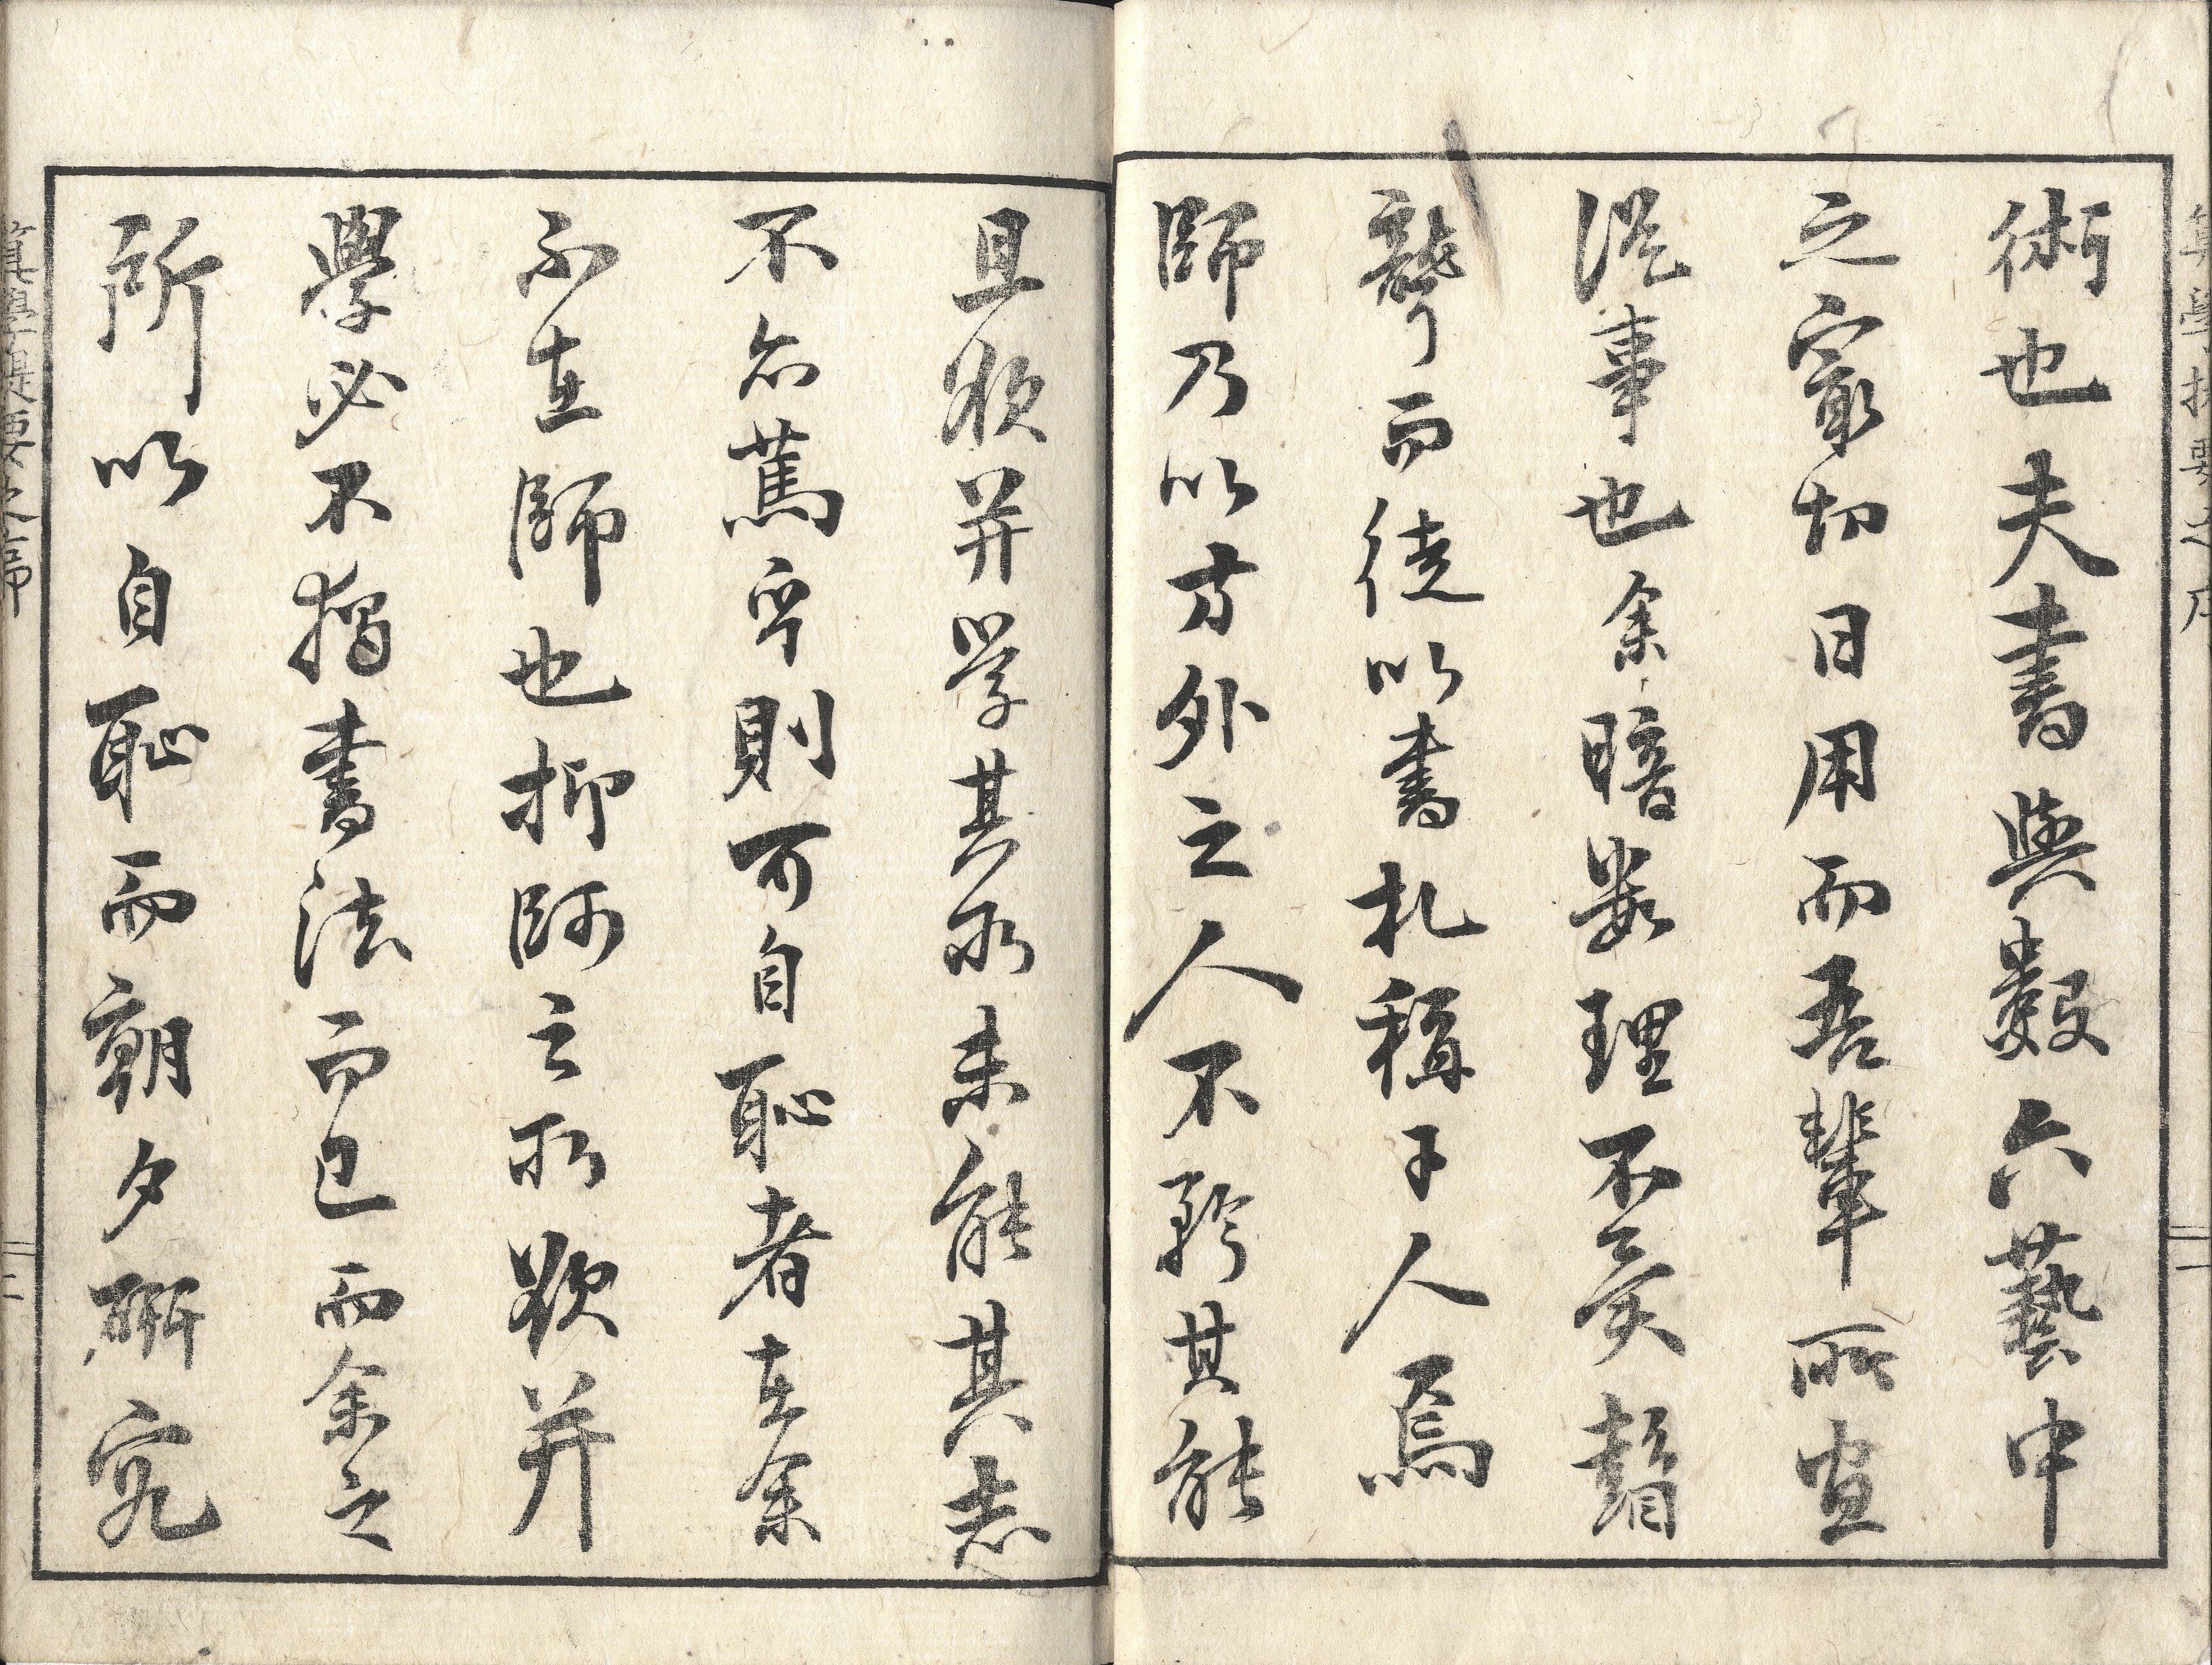 術也夫書與數六藝中
之冣切日用而吾輩所宜
從事也余暗數理不異瞽
聾而徒以書札稱于人焉
師乃以方外之人不矜其能
且欲并学其所未能其志
不亦篤乎則可自恥者在余
不在師也抑師之所欲并
學必不獨書法而已而余之
所以自恥而朝夕研究
算學提要之序